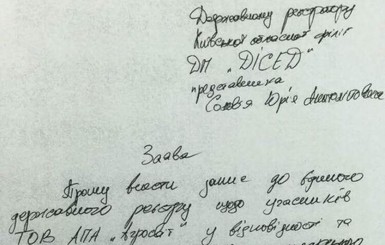 Державному реєстратору
Київської обласної філії
ДП „ДІСЕД"
представника
Юрія Анатолійовича
Заява
Прошу внести до Єдиного
державного реєстру щодо учасників
ТОВ АПА у відповідності та